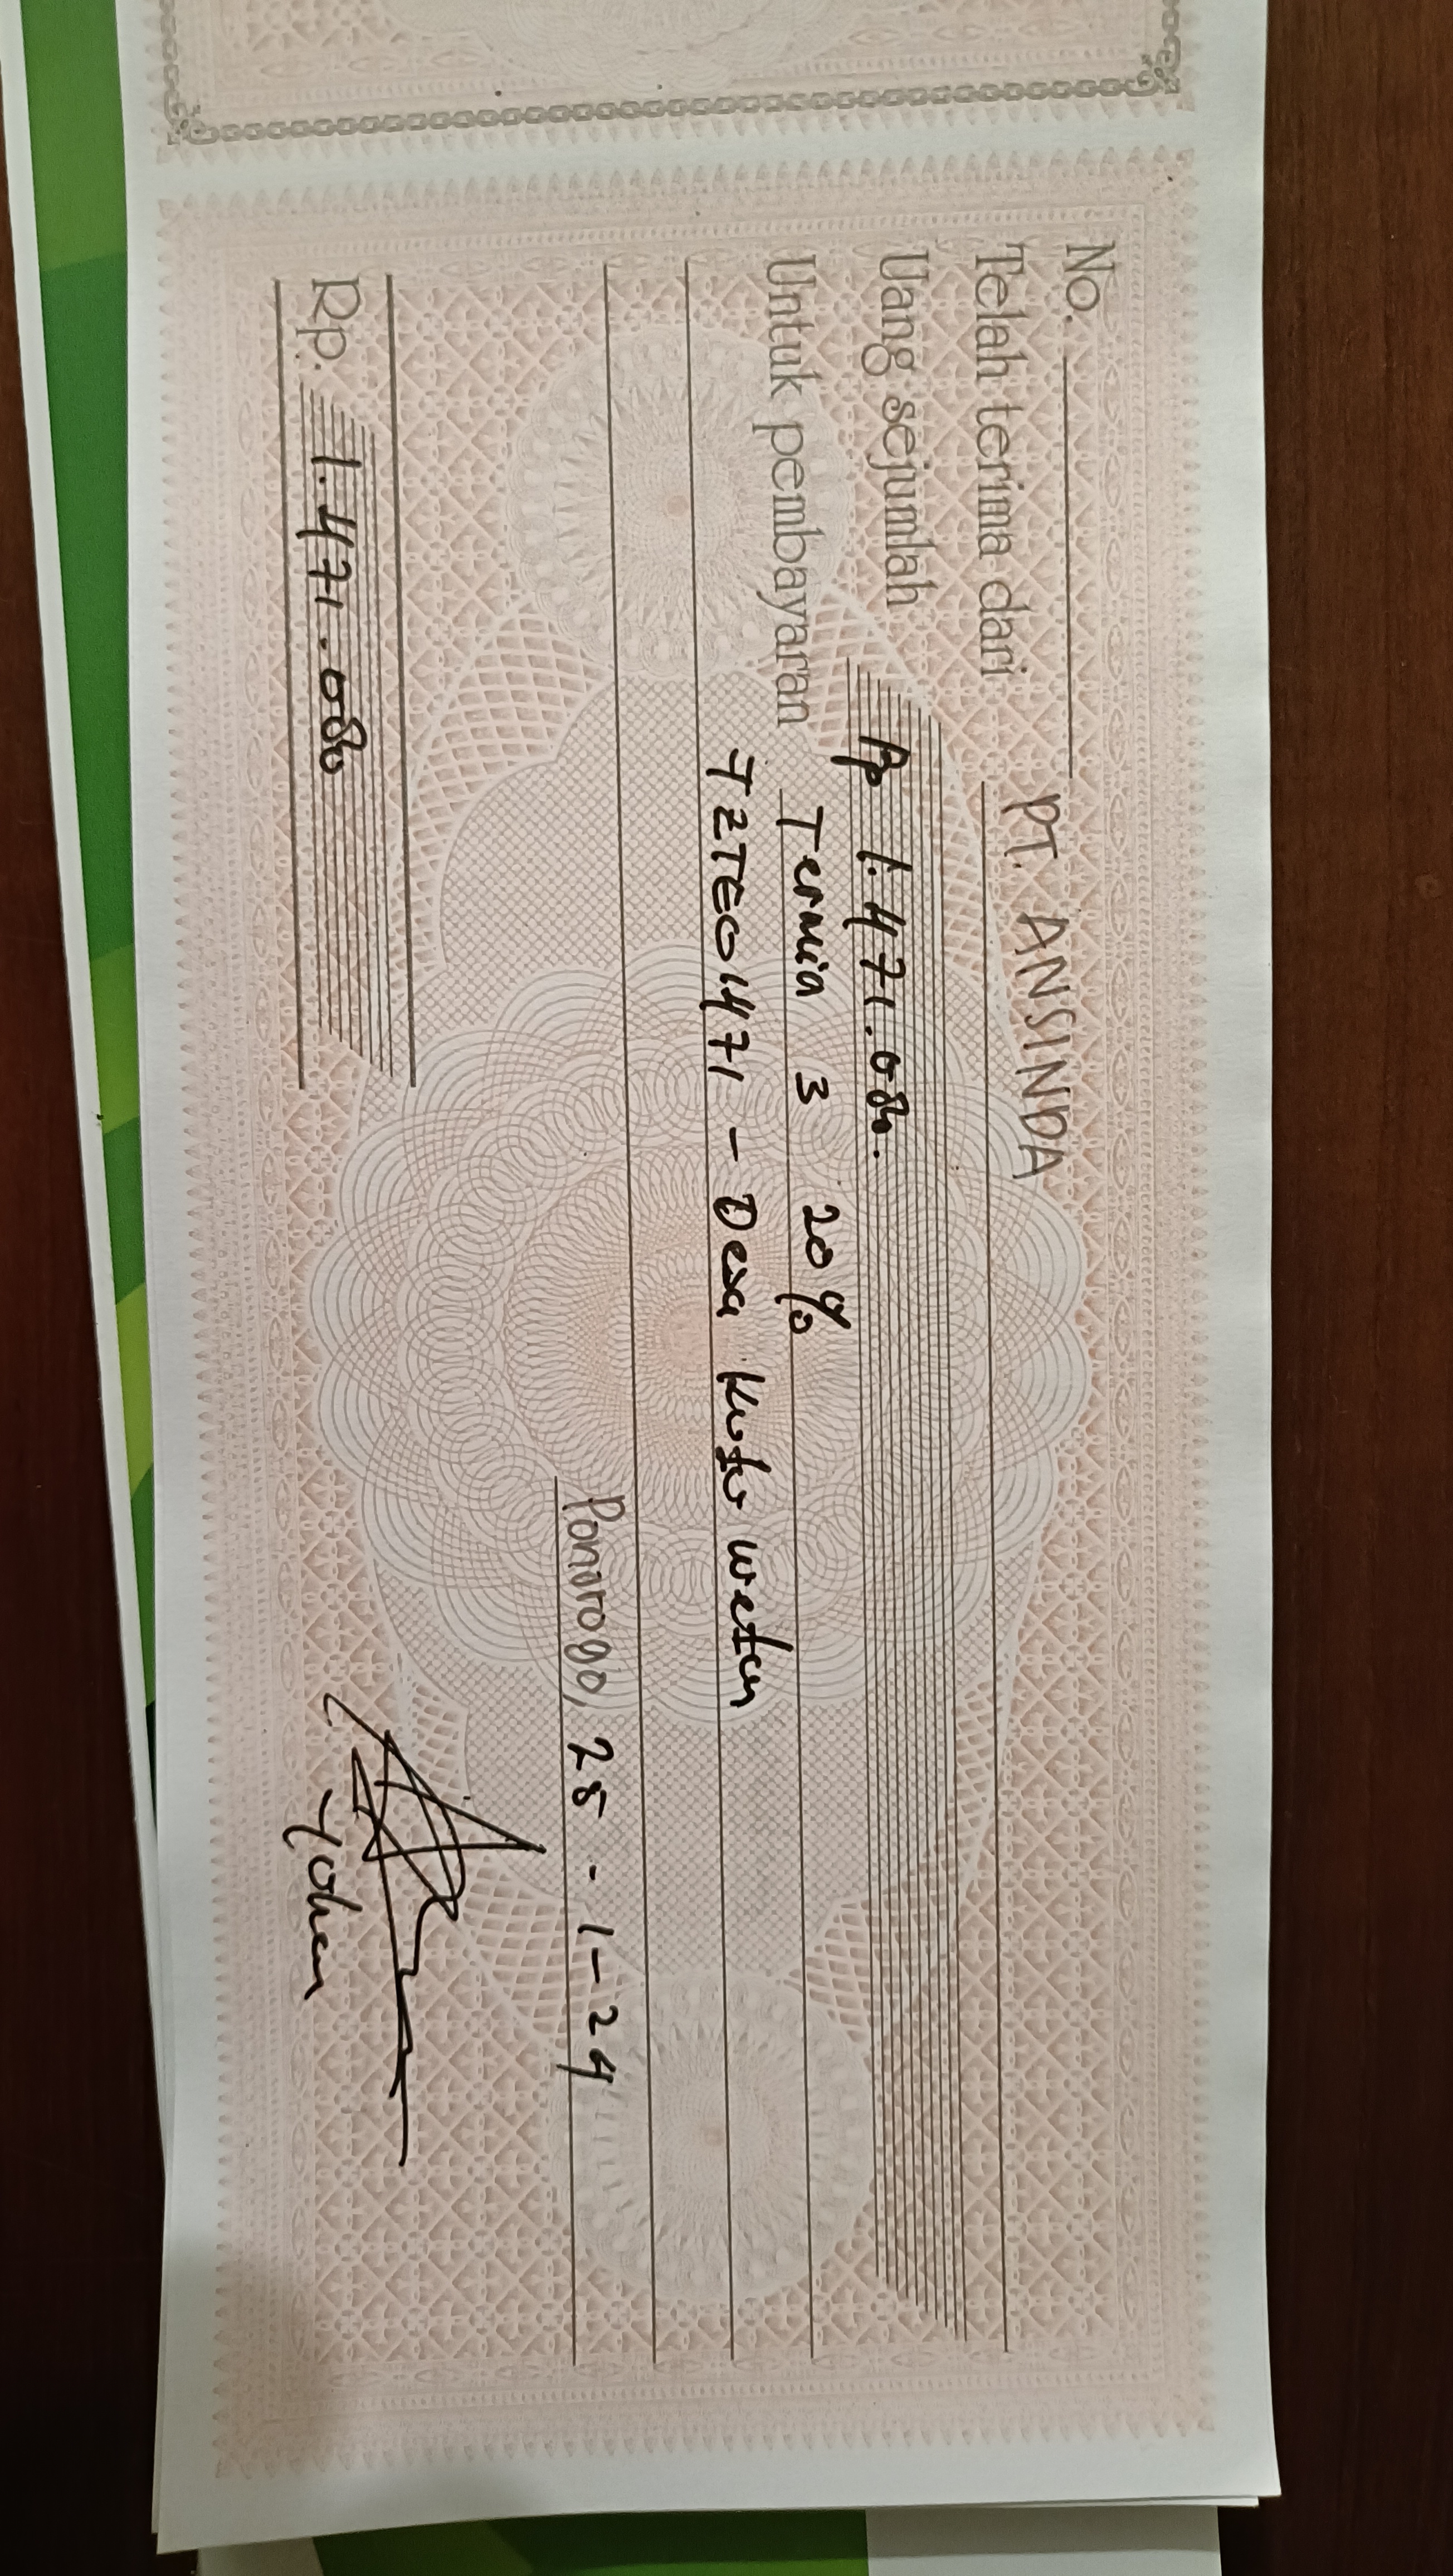 No.
Telah terima dari PT. ANSINDA
Uang sejumlah Rp 1.471.080.
Untuk pembayaran Termin 3 20%
TZTEO1471 - Desa Kutu wetan
Ponorogo, 25 - 1 - 24
Rp. 1.471.080
Yohan